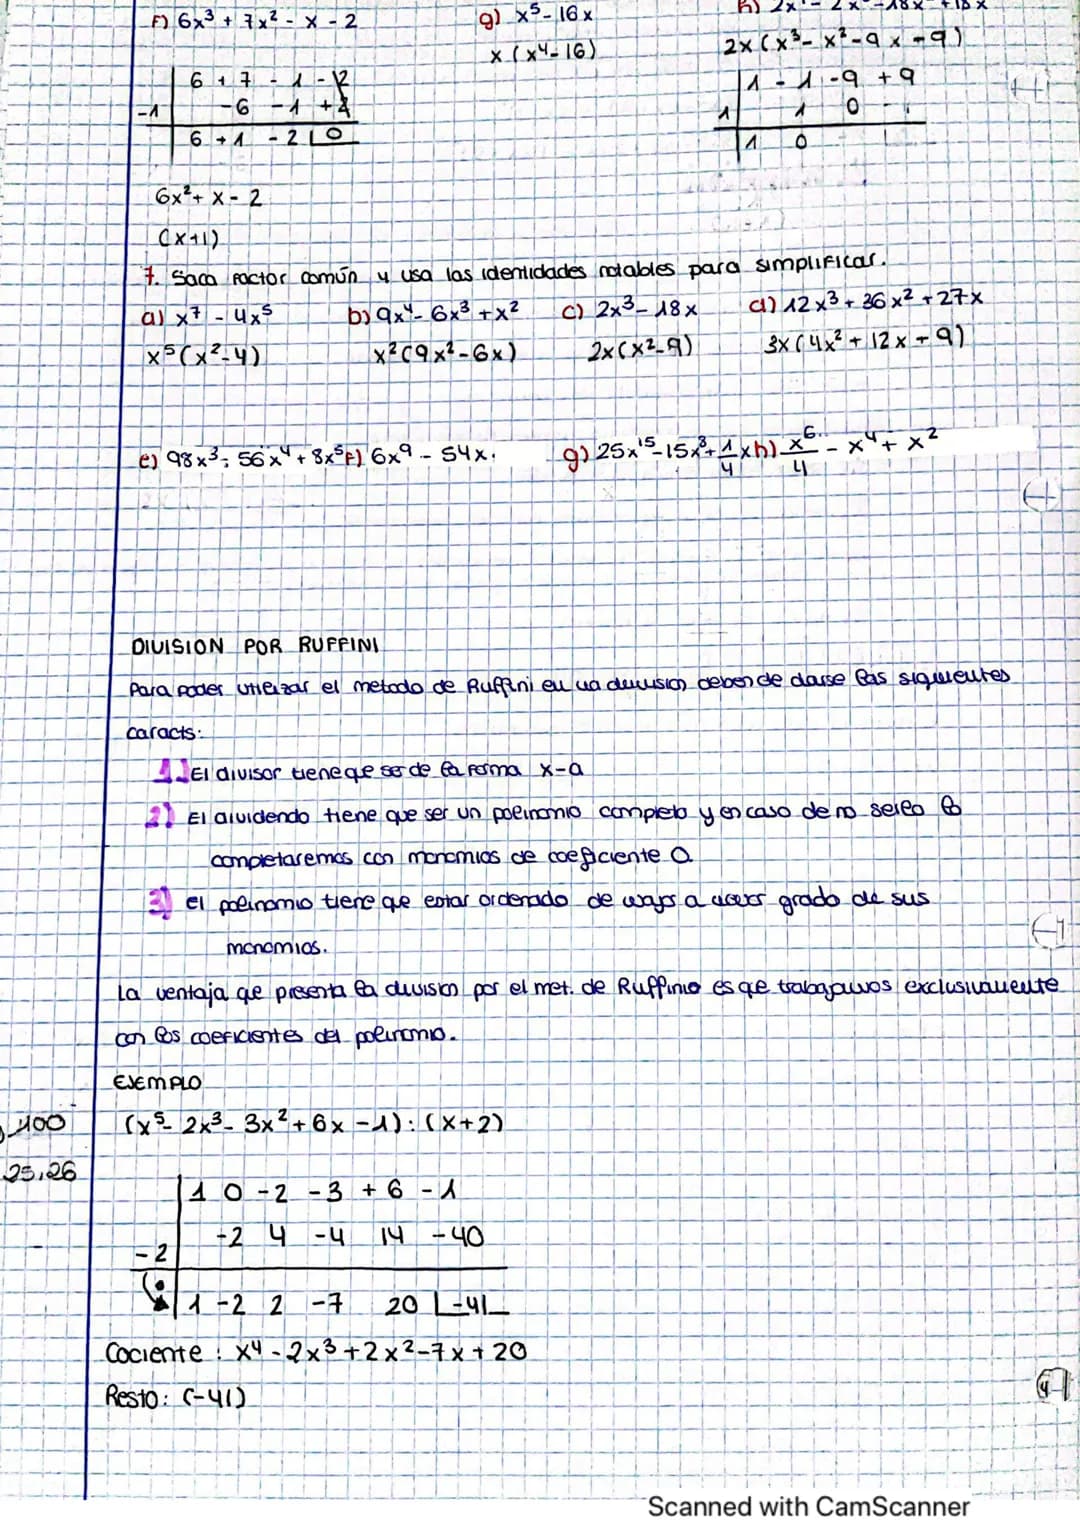 F) 6x³ + 7x² - x - 2
g) x⁵ - 16x
x (x⁴ - 16)
2x (x³ - x² - 9x - 9)
6 + 7 - 1 - 2
-1 -6 -1 +2
6 + 1 - 2 | 0
1 - 1 - 9 + 9
1 1 0
1 0
6x² + x - 2
(x+1)
7. Saca factor común y usa las identidades notables para simplificar.
a) x⁷ - 4x⁵ b) 9x⁴ - 6x³ + x² c) 2x³ - 18x d) 12x³ + 36x² + 27x
x⁵(x² - 4) x²(9x² - 6x) 2x(x² - 9) 3x(4x² + 12x + 9)
e) 98x³ - 56x⁴ + 8x⁵ F) 6x⁹ - 54x. g) 25x¹⁵ - 15x³ + 1/4 x h) x⁶/4 - x⁴ + x²
DIVISION POR RUFFINI
Para poder utilizar el metodo de Ruffini en una division deben de darse las siguientes
caracts:
1) El divisor tiene que ser de la forma x-a
2) El dividendo tiene que ser un polinomio completo y en caso de no serlo lo
completaremos con monomios de coeficiente 0.
3) el polinomio tiene que estar ordenado de mayor a menor grado de sus
monomios.
La ventaja que presenta la division por el met. de Ruffinio es qe trabajamos exclusivamente
con los coeficientes del polinomio.
EJEMPLO
100
(x⁵ - 2x³ - 3x² + 6x - 1) : (x+2)
25,26
1 0 -2 -3 +6 -1
-2 -2 4 -4 14 -40
1 -2 2 -7 20 |-41
Cociente : x⁴ - 2x³ + 2x² - 7x + 20
Resto: (-41)
Scanned with CamScanner